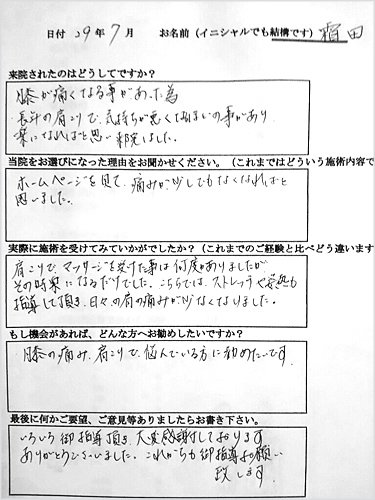 日付 29年7月 お名前(イニシャルでも結構です) 稲田
来院されたのはどうしてですか?
膝が痛くなる事があった為
長年の肩こりで、気持ちが悪くて
の事があり
楽になればと思い来院しました。
当院をお選びになった理由をお聞かせください。(これまではどういう施術内容で
ホームページを見て、痛みが少しでもなくなればと
思いました。
実際に施術を受けてみていかがでしたか?(これまでのご経験と比べどう違います
肩こりで、マッサージを受けた事は何度かありましたが
その時楽になるだけでした。こちらでは、ストレッチや
も
指導して頂き、日々の肩の痛みが少なくなりました。
もし機会があれば、どんな方へお勧めしたいですか?
膝の痛み、肩こりで、悩んでいる方に勧めたいです。
最後に何かご要望、ご意見等ありましたらお書き下さい。
いろいろ御指導頂き、大変感謝しております
ありがとうございました。これからも御指導お願い
致します。